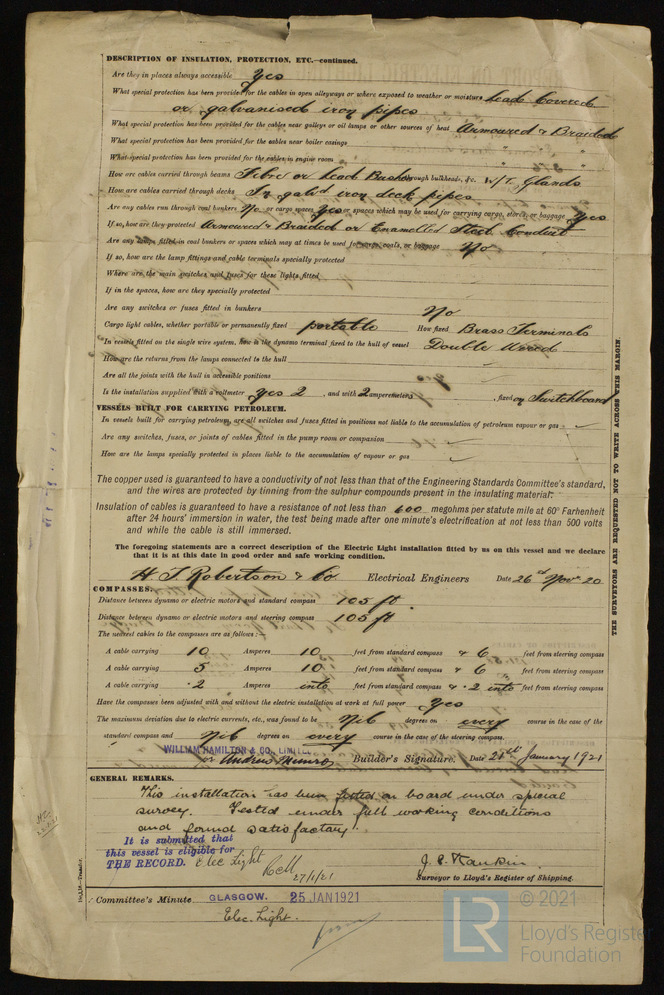 DESCRIPTION OF INSULATION, PROTECTION, ETC.—continued.
Are they in places always accessible Yes
What special protection has been provided for the cables in open alleyways or where exposed to weather or moisture Lead Covered
or galvanised iron pipes
What special protection has been provided for the cables near galleys or oil lamps or other sources of heat Armoured & Braided
What special protection has been provided for the cables near boiler casings
What special protection has been provided for the cables in engine room
How are cables carried through beams Fibre or Lead Bushes through bulkheads, &c. W/T. Glands
How are cables carried through decks In galvd iron deck pipes
Are any cables run through coal bunkers No or cargo spaces Yes or spaces which may be used for carrying cargo, stores, or baggage Yes
If so, how are they protected Armoured & Braided or Enamelled Steel Conduit
Are any lamps fitted in coal bunkers or spaces which may at times be used for cargo, coals, or baggage No
If so, how are the lamp fittings and cable terminals specially protected
Where are the main switches and fuses for these lights fitted
If in the spaces, how are they specially protected
Are any switches or fuses fitted in bunkers No
Cargo light cables, whether portable or permanently fixed portable How fixed Brass Terminals
In vessels fitted on the single wire system, how is the dynamo terminal fixed to the hull of vessel Double Wired
How are the returns from the lamps connected to the hull
Are all the joints with the hull in accessible positions
Is the installation supplied with a voltmeter Yes 2, and with 2 amperemeters, fixed on Switchboard
VESSELS BUILT FOR CARRYING PETROLEUM.
In vessels built for carrying petroleum, are all switches and fuses fitted in positions not liable to the accumulation of petroleum vapour or gas ✓
Are any switches, fuses, or joints of cables fitted in the pump room or companion ✓
How are the lamps specially protected in places liable to the accumulation of vapour or gas ✓
The copper used is guaranteed to have a conductivity of not less than that of the Engineering Standards Committee's standard,
and the wires are protected by tinning from the sulphur compounds present in the insulating material.
Insulation of cables is guaranteed to have a resistance of not less than 600 megohms per statute mile at 60° Farhenheit
after 24 hours' immersion in water, the test being made after one minute's electrification at not less than 500 volts
and while the cable is still immersed.
The foregoing statements are a correct description of the Electric Light installation fitted by us on this vessel and we declare
that it is at this date in good order and safe working condition.
H. T. Robertson & Co Electrical Engineers Date 26th Nov. 20
COMPASSES.
Distance between dynamo or electric motors and standard compass 105 ft.
Distance between dynamo or electric motors and steering compass 105 ft
The nearest cables to the compasses are as follows:—
A cable carrying 10 Amperes 10 feet from standard compass & 6 feet from steering compass
A cable carrying 5 Amperes 10 feet from standard compass & 6 feet from steering compass
A cable carrying .2 Amperes into feet from standard compass & .2 into feet from steering compass
Have the compasses been adjusted with and without the electric installation at work at full power Yes
The maximum deviation due to electric currents, etc., was found to be Nil degrees on every course in the case of the
standard compass and Nil degrees on every course in the case of the steering compass.
WILLIAM HAMILTON & CO., LIMITED
Andrew Munro Builder's Signature. Date 21st January 1921
GENERAL REMARKS.
This installation has been fitted on board under special
survey. Tested under full working conditions
and found satisfactory.
It is submitted that
this vessel is eligible for
THE RECORD. Elec Light
27/1/21
J. S. Rankin.
Surveyor to Lloyd's Register of Shipping.
Committee's Minute GLASGOW. 25 JAN 1921
Elec. Light.
THE SURVEYORS ARE REQUESTED NOT TO WRITE ACROSS THIS MARGIN
LR
© 2021
Lloyd's Register
Foundation